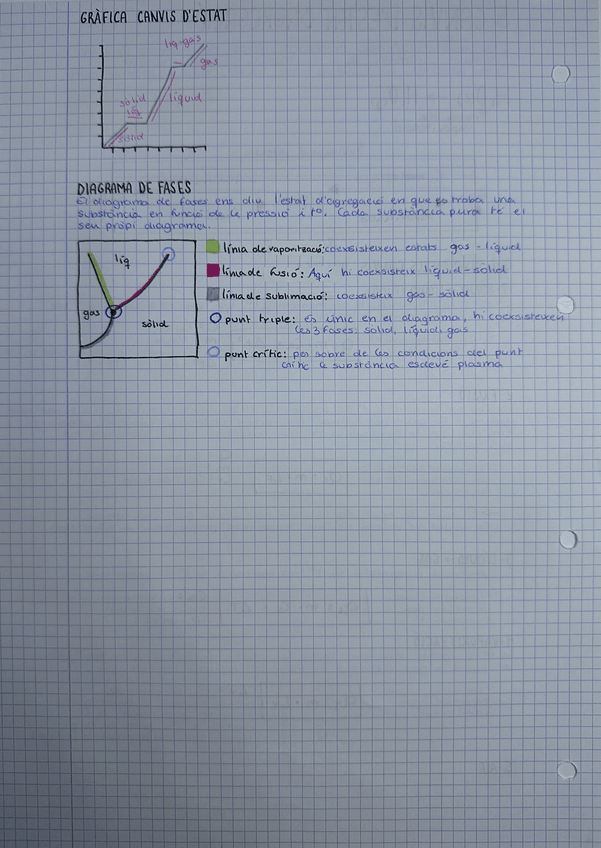 GRÀFICA CANVIS D'ESTAT
liq-gas
gas
sòlid
líquid
liq
sòlid
DIAGRAMA DE FASES
El diagrama de fases ens diu l'estat d'agregació en que es troba una
substància en funció de la pressió i tº. Cada substància pura té el
seu propi diagrama.
línia de vaporització: coexsisteixen estats gas-líquid
línia de fusió: Aquí hi coexsisteix líquid-sòlid
línia de sublimació: coexsisteix gas-sòlid
punt triple: és únic en el diagrama, hi coexsisteixen
les 3 fases. sòlid, líquid i gas
punt crític: per sobre de les condicions del punt
crític la substància esdevé plasma
liq
gas
sòlid